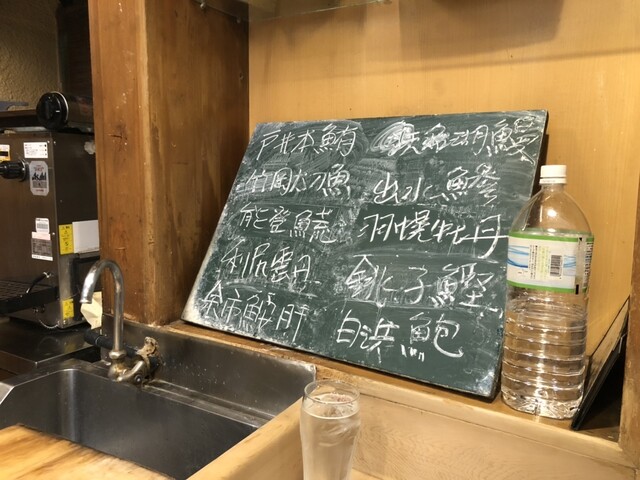 戸井本鮪
竹岡太刀魚
能登
利尻雲丹
余市鮟肝
浜名湖鰻
出水鰺
羽幌牡丹
銚子鰹
白浜鮑